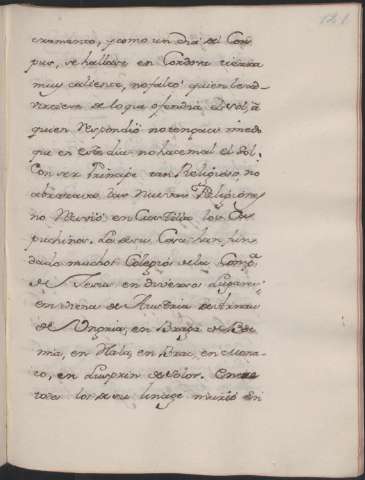 121
cramento, y como un dia del Cor
pus, se hallase en Cordova tierra
muy caliente, no faltó quien le ad-
virtiese de lo que ofendia el sol, á
quien respondió no tengais miedo
que en este dia no hace mal el sol.
Con ser Principe tan Religioso, no
abrazava las nuevas Religiones
no recivió en Castilla los Ca-
puchinos. La de su Casa han fun
dado muchos Colegios de la Comp.ª
de Jesus en diversos Lugares
en Viena de Austria de
de Ungria, en Praga de Boe
mia, en Hala, en en Mona-
co, en de Tolor. Entre
todos los de su linage murió en